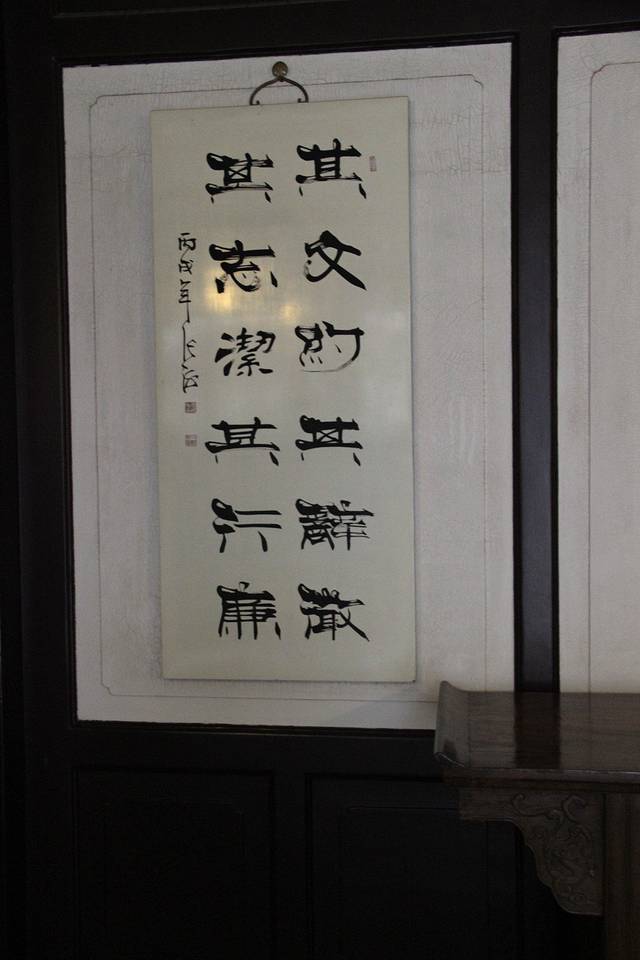 其文約其辭微
其志潔其行廉
丙戌年